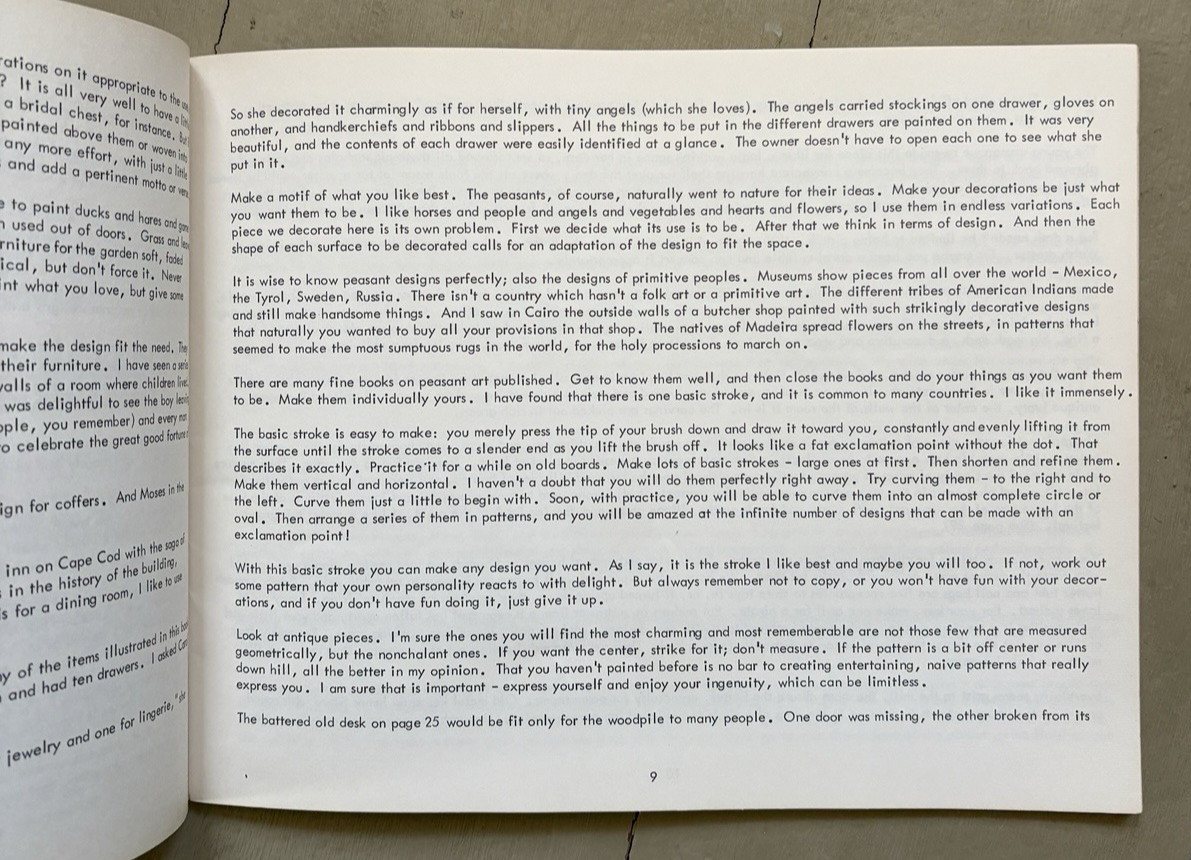 rations on it appropriate to the
? It is all very well to have a
a bridal chest, for instance. But
painted above them or woven into
any more effort, with just a little
and add a pertinent motto or verse
e to paint ducks and hares and
n used out of doors. Grass and
rniture for the garden soft, faded
ical, but don't force it. Never
int what you love, but give some
make the design fit the need. They
their furniture. I have seen a
valls of a room where children
was delightful to see the boy
ople, you remember) and every
o celebrate the great good fortune
ign for coffers. And Moses in the
inn on Cape Cod with the saga of
s in the history of the building,
s for a dining room, I like to use
y of the items illustrated in this
and had ten drawers. I asked
jewelry and one for lingerie," she
So she decorated it charmingly as if for herself, with tiny angels (which she loves). The angels carried stockings on one drawer, gloves on
another, and handkerchiefs and ribbons and slippers. All the things to be put in the different drawers are painted on them. It was very
beautiful, and the contents of each drawer were easily identified at a glance. The owner doesn't have to open each one to see what she
put in it.
Make a motif of what you like best. The peasants, of course, naturally went to nature for their ideas. Make your decorations be just what
you want them to be. I like horses and people and angels and vegetables and hearts and flowers, so I use them in endless variations. Each
piece we decorate here is its own problem. First we decide what its use is to be. After that we think in terms of design. And then the
shape of each surface to be decorated calls for an adaptation of the design to fit the space.
It is wise to know peasant designs perfectly; also the designs of primitive peoples. Museums show pieces from all over the world - Mexico,
the Tyrol, Sweden, Russia. There isn't a country which hasn't a folk art or a primitive art. The different tribes of American Indians made
and still make handsome things. And I saw in Cairo the outside walls of a butcher shop painted with such strikingly decorative designs
that naturally you wanted to buy all your provisions in that shop. The natives of Madeira spread flowers on the streets, in patterns that
seemed to make the most sumptuous rugs in the world, for the holy processions to march on.
There are many fine books on peasant art published. Get to know them well, and then close the books and do your things as you want them
to be. Make them individually yours. I have found that there is one basic stroke, and it is common to many countries. I like it immensely.
The basic stroke is easy to make: you merely press the tip of your brush down and draw it toward you, constantly and evenly lifting it from
the surface until the stroke comes to a slender end as you lift the brush off. It looks like a fat exclamation point without the dot. That
describes it exactly. Practice it for a while on old boards. Make lots of basic strokes - large ones at first. Then shorten and refine them.
Make them vertical and horizontal. I haven't a doubt that you will do them perfectly right away. Try curving them - to the right and to
the left. Curve them just a little to begin with. Soon, with practice, you will be able to curve them into an almost complete circle or
oval. Then arrange a series of them in patterns, and you will be amazed at the infinite number of designs that can be made with an
exclamation point!
With this basic stroke you can make any design you want. As I say, it is the stroke I like best and maybe you will too. If not, work out
some pattern that your own personality reacts to with delight. But always remember not to copy, or you won't have fun with your decor-
ations, and if you don't have fun doing it, just give it up.
Look at antique pieces. I'm sure the ones you will find the most charming and most rememberable are not those few that are measured
geometrically, but the nonchalant ones. If you want the center, strike for it; don't measure. If the pattern is a bit off center or runs
down hill, all the better in my opinion. That you haven't painted before is no bar to creating entertaining, naive patterns that really
express you. I am sure that is important - express yourself and enjoy your ingenuity, which can be limitless.
The battered old desk on page 25 would be fit only for the woodpile to many people. One door was missing, the other broken from its
9